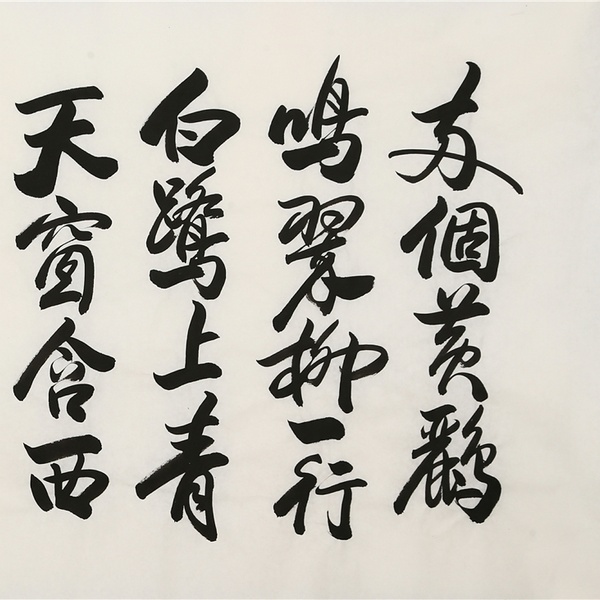 两個黄鸝
鳴翠柳一行
白鷺上青
天窗含西